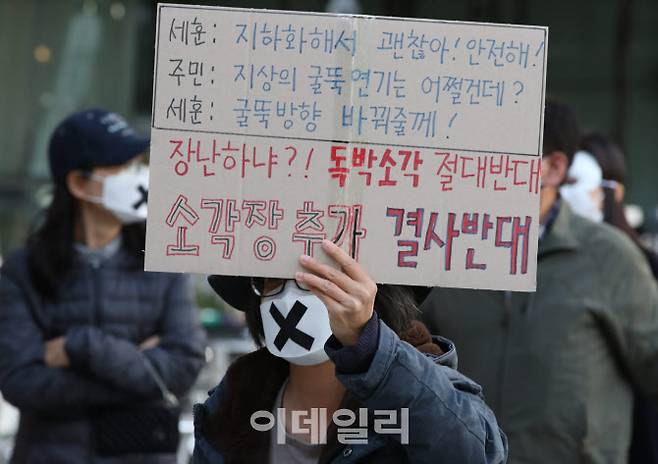 세훈: 지하화해서 괜찮아! 안전해!
주민: 지상의 굴뚝연기는 어쩔건데?
세훈: 굴뚝방향 바꿔줄께!
장난하냐?! 독박소각 절대반대
소각장 추가 결사반대
이데일리